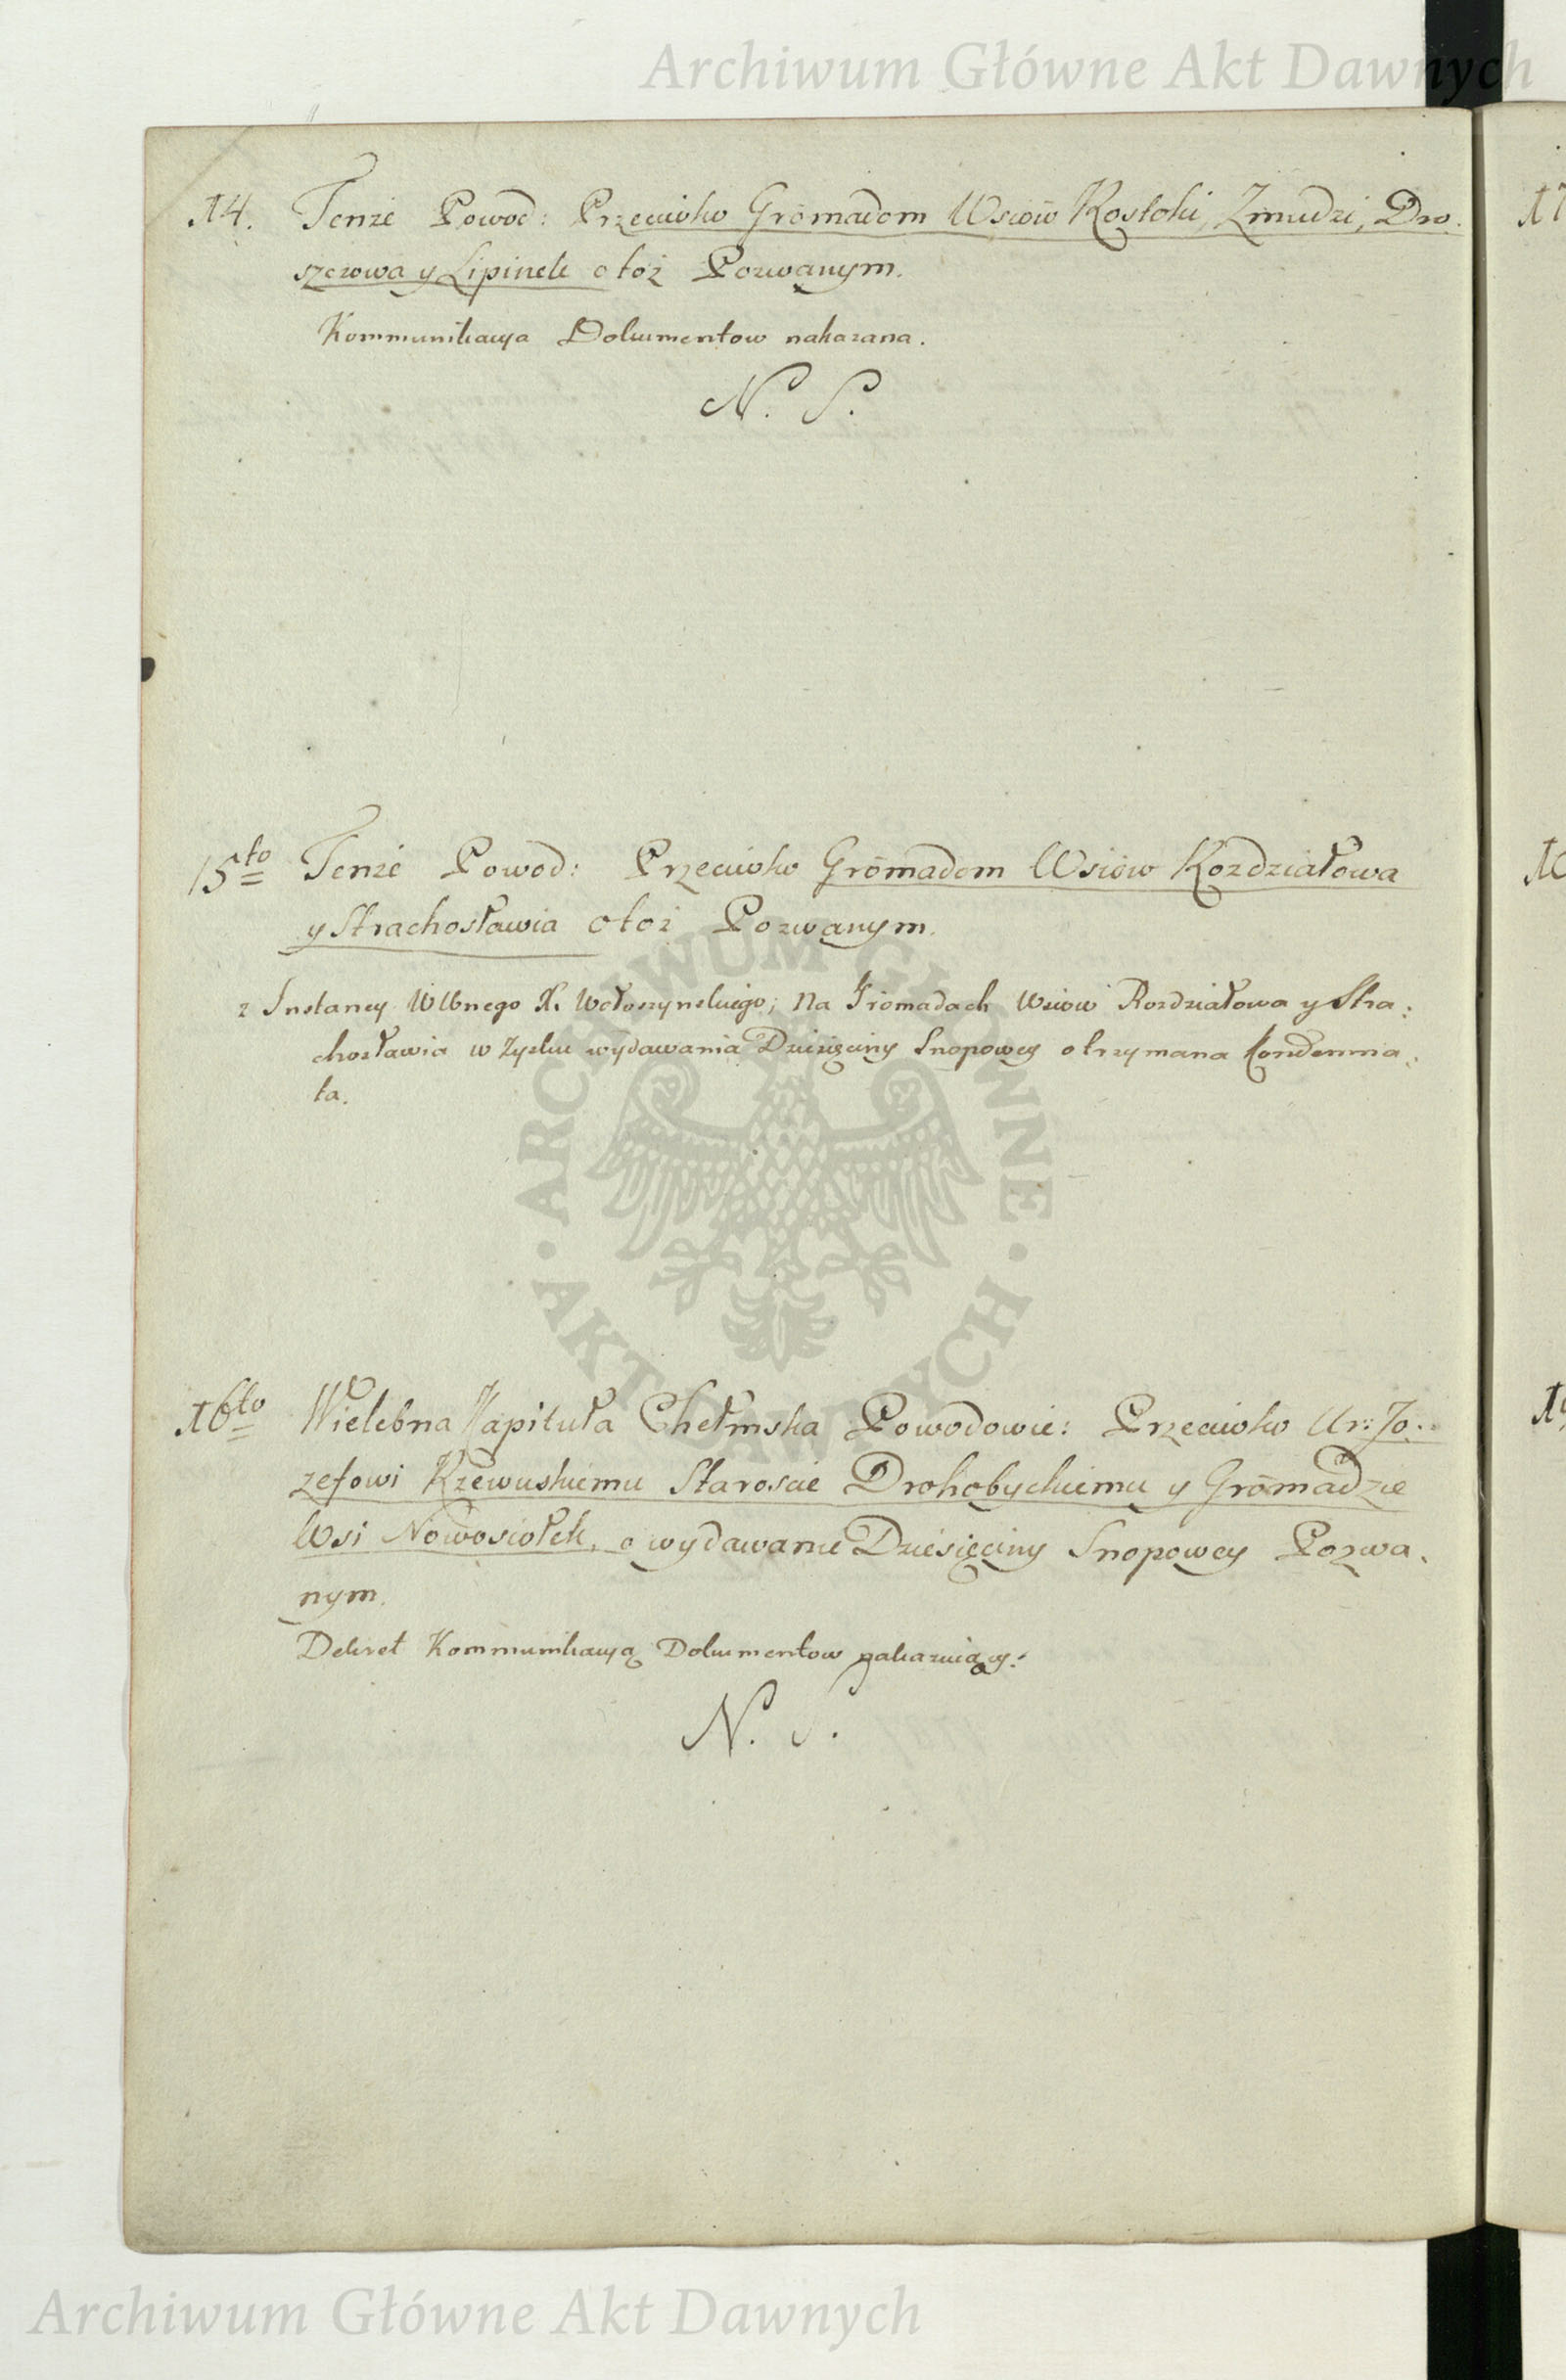 Archiwum Główne Akt Dawnych
14. Tenże Powod: Przeciwko Gromadom Wsiow Rostoki, Zmudzi, Dro.
szczowa y Lipinek o toż Pozwanym.
Kommunikacya Dokumentow nakazana.
N. S.
15to Tenże Powod: Przeciwko Gromadom Wsiow Rozdziałowa
y Strachosławia o toż Pozwanym.
z Instancy Wlbnego X. Wołoszynskiego; Na Gromadach Wsiow Rozdziałowa y Stra:
chosławia w Zysku wydawania Dziesięciny Snopowey otrzymana Kondemna:
ta.
ARCHIWUM GŁÓWNE · AKT DAWNYCH ·
16to Wielebna Kapituła Chełmska Powodowie: Przeciwko Ur: Jo..
zefowi Rzewuskiemu Staroscie Drohobyckiemu y Gromadzie
Wsi Nowosiołek, o wydawanie Dziesięciny Snopowey Pozwa.
nym.
Dekret Kommunikacyą Dokumentow nakazuiący:
N. S.
Archiwum Główne Akt Dawnych